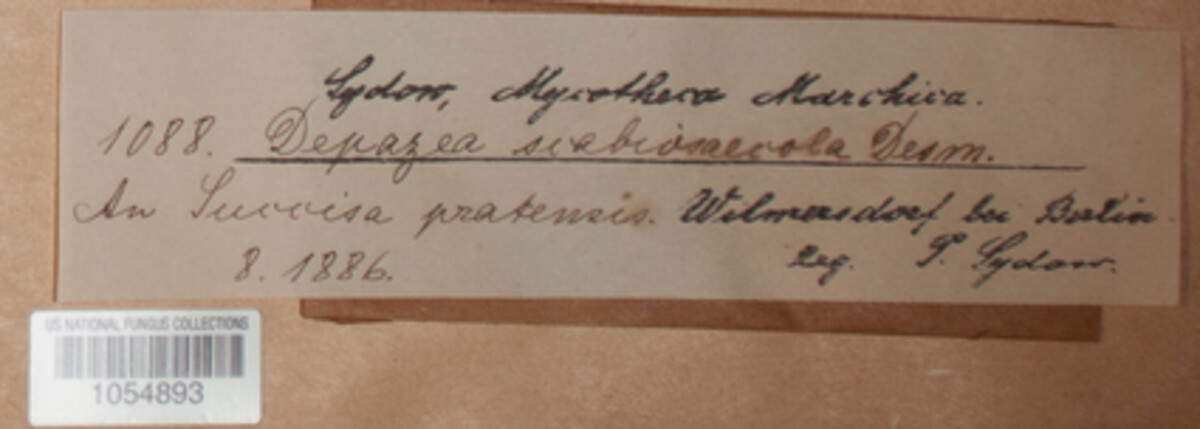 Sydow, Mycotheca Marchica.
1088. Depazea scabiosaecola Desm.
An Succisa pratensis. Wilmersdorf bei Berlin.
8. 1886. Leg. P. Sydow.
US NATIONAL FUNGUS COLLECTIONS
1054893